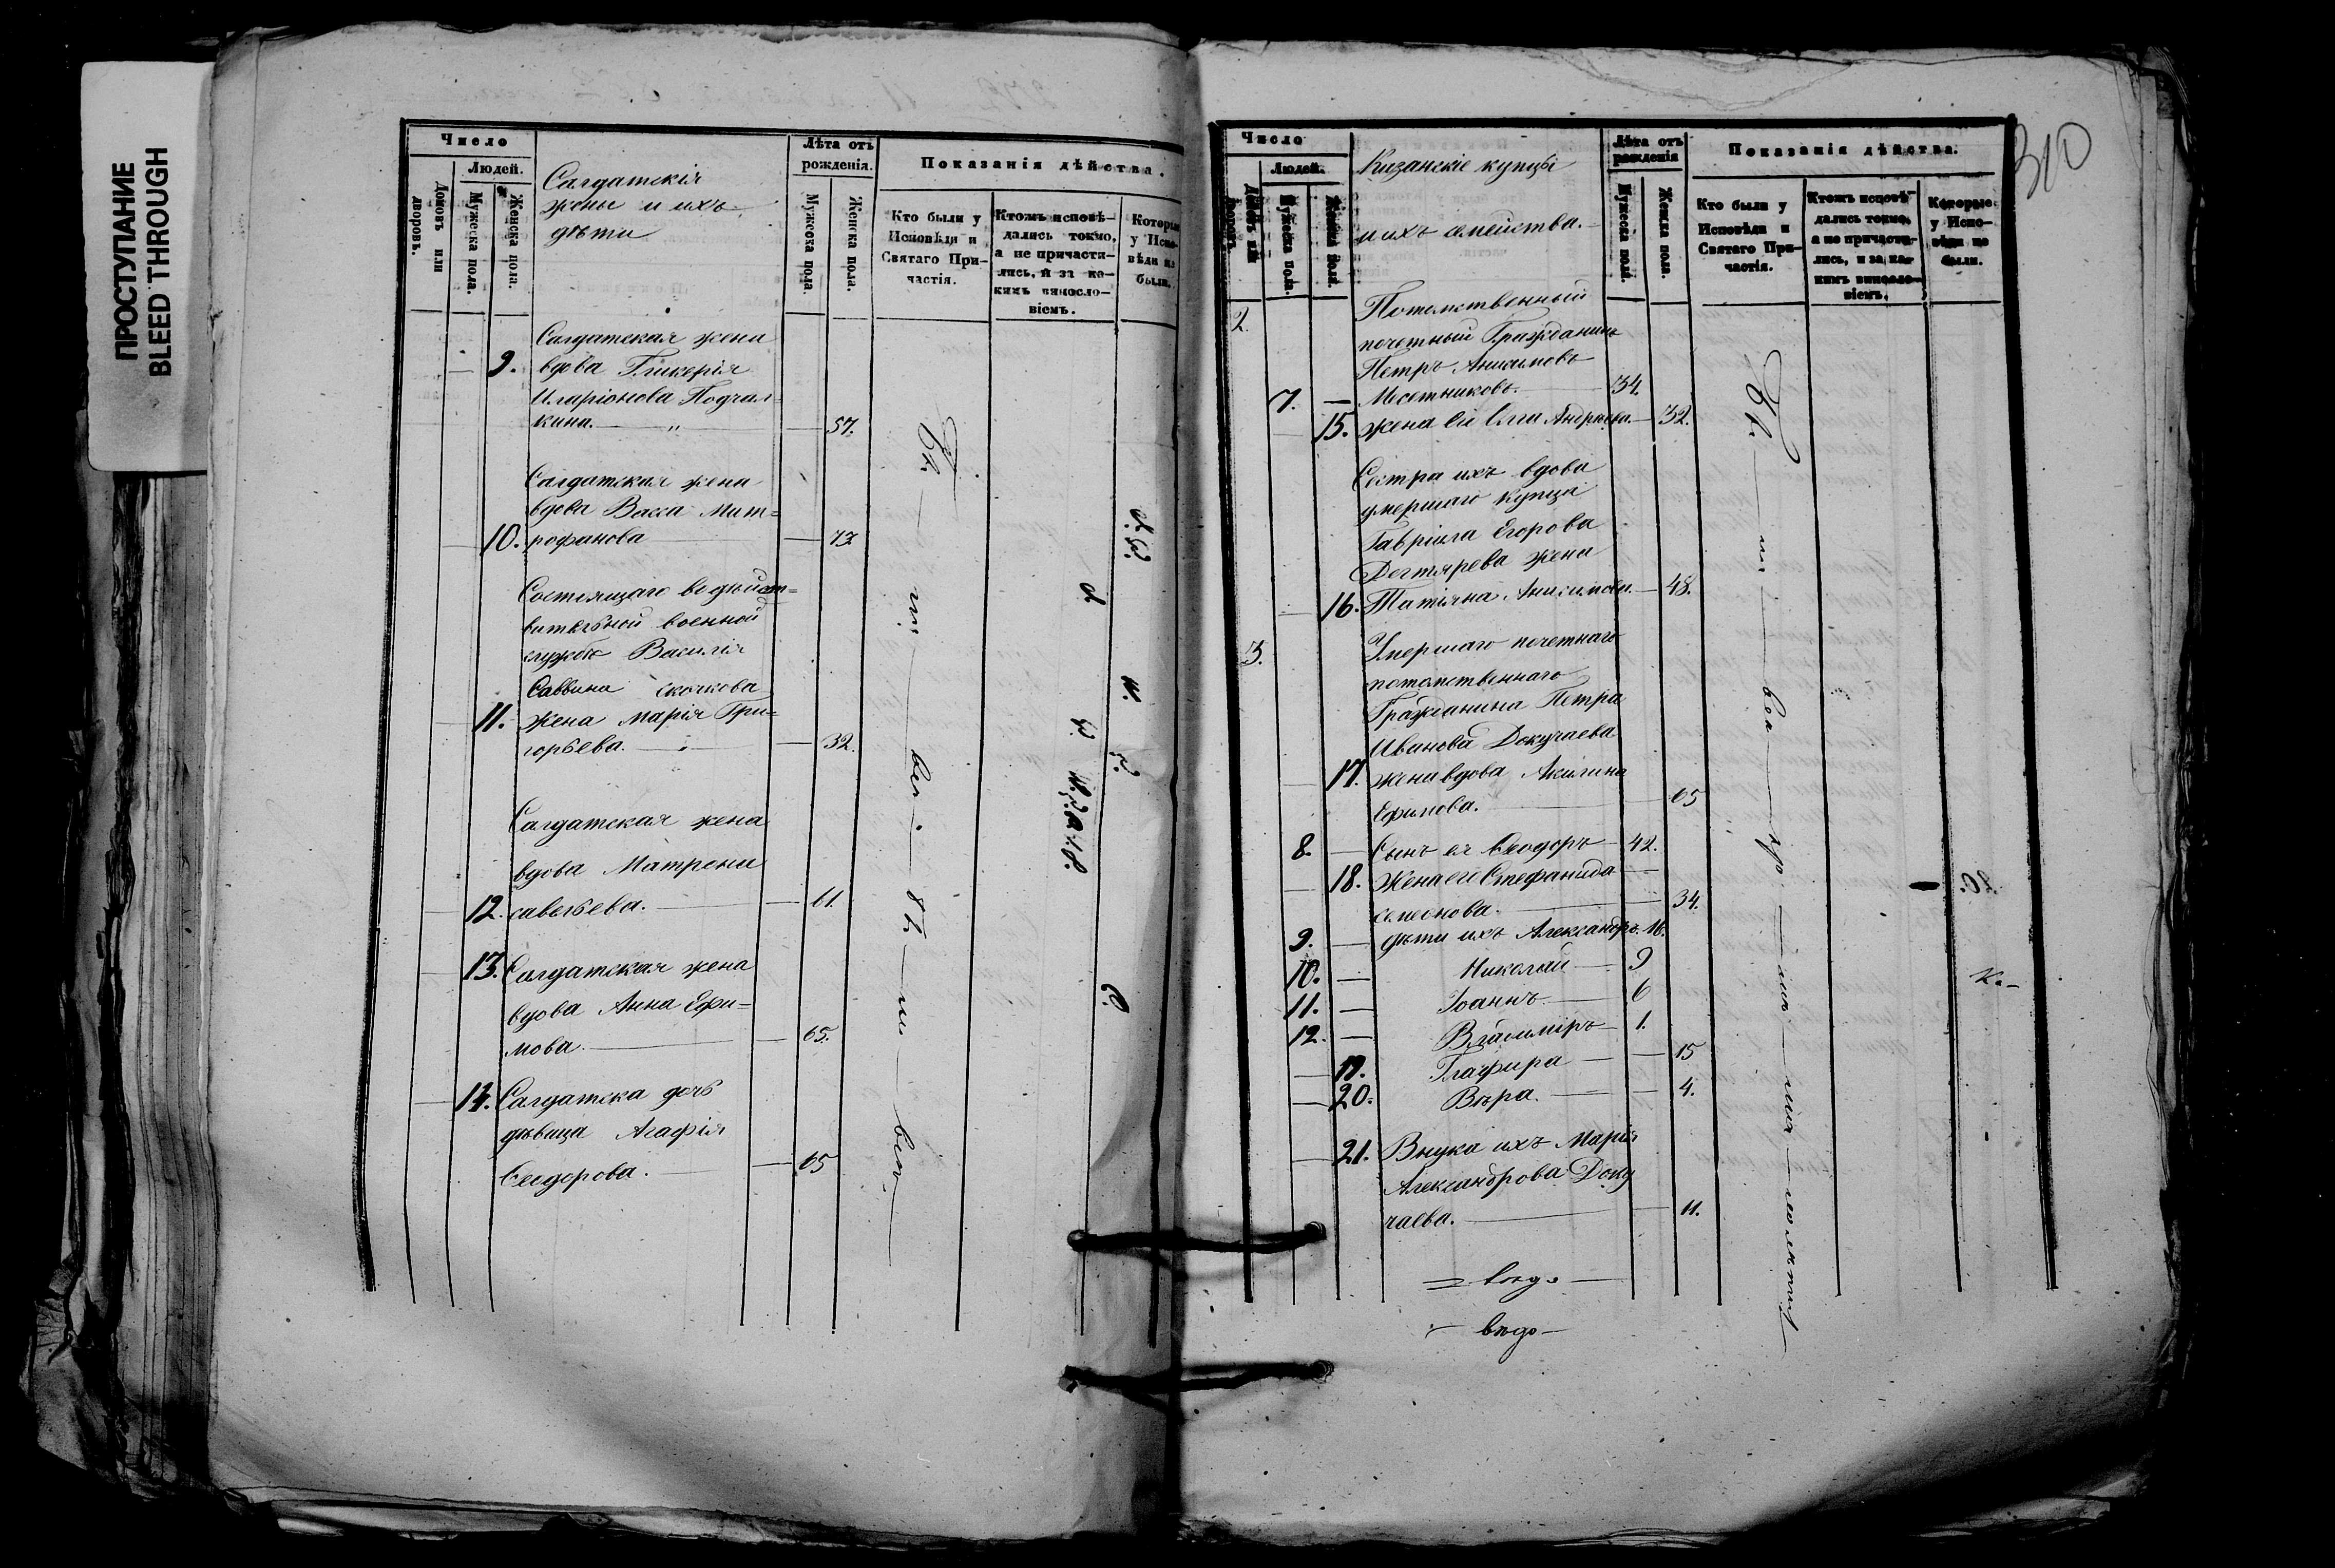 ПРОСТУПАНИЕ
BLEED THROUGH
Число
Людей.
Домовъ или дворовъ.
Мужеска пола.
Женска пола.
Салдатскія
жены и ихъ
дѣти
Лѣта отъ
рожденія.
Мужеска пола.
Женска пола.
Показанія дѣйства.
Кто были у
Исповѣди и
Святаго При-
частія.
Ктожъ исповѣ-
дались токмо,
а не причасти-
лись, и за ка-
кимъ винносло-
віемъ.
Которые
у Испо-
вѣди не
были.
Салдатская жена
9. вдова Гликерія
Иларіонова Подчал-
кина. — 57.
Салдатская жена
вдова Васса Мит=
10. рофанова — 73
Состоящаго въ дѣйст-
вительной военной
службѣ Василія
Саввина Скочкова
11. жена Марія Гри=
горьева. — 32.
Салдатская жена
вдова Матрена
12. савельева. — 61.
13. Салдатская жена
вдова Анна Ефи=
мова. — 65.
14. Салдатска дочь
дѣвица Агафія
Ѳеодорова. — 65
310
Число
Людей.
Домовъ или дворовъ.
Мужеска пола.
Женска пола.
Казанскіе купцы
и ихъ семейства.
Лѣта отъ
рожденія
Мужеска пола.
Женска пола.
Показанія дѣйства.
Кто были у
Исповѣди и
Святаго При-
частія.
Ктожъ исповѣ-
дались токмо,
а не причасти-
лись, и за ка-
кимъ винносло-
віемъ.
Которые
у Испо-
вѣди не
были.
2. Потомственный
почетный Гражданинъ
Петръ Анисимовъ
7. — Месетниковъ. — 34.
15. жена его Олга Андреева. — 32.
Сестра ихъ вдова
умершаго купца
Гавріила Егорова
Дегтярева жена
16. Татіяна Анисимова. — 48.
3. Умершаго почетнаго
потомственнаго
Гражданина Петра
Иванова Докучаева
17. жена вдова Акилина
Ефимова. — 65
8. — Сынъ ея Ѳеодоръ — 42.
18. Жена его Стефанида
семенова. — 34.
9. — дѣти ихъ Александръ. 16.
10. — Николай — 9
11. — Іоаннъ. — 6
12. — Владиміръ — 1.
19. Глафира — 15
20. Вѣра. — 4.
21. Внука ихъ Марія
Александрова Доку
чаева. — 11.